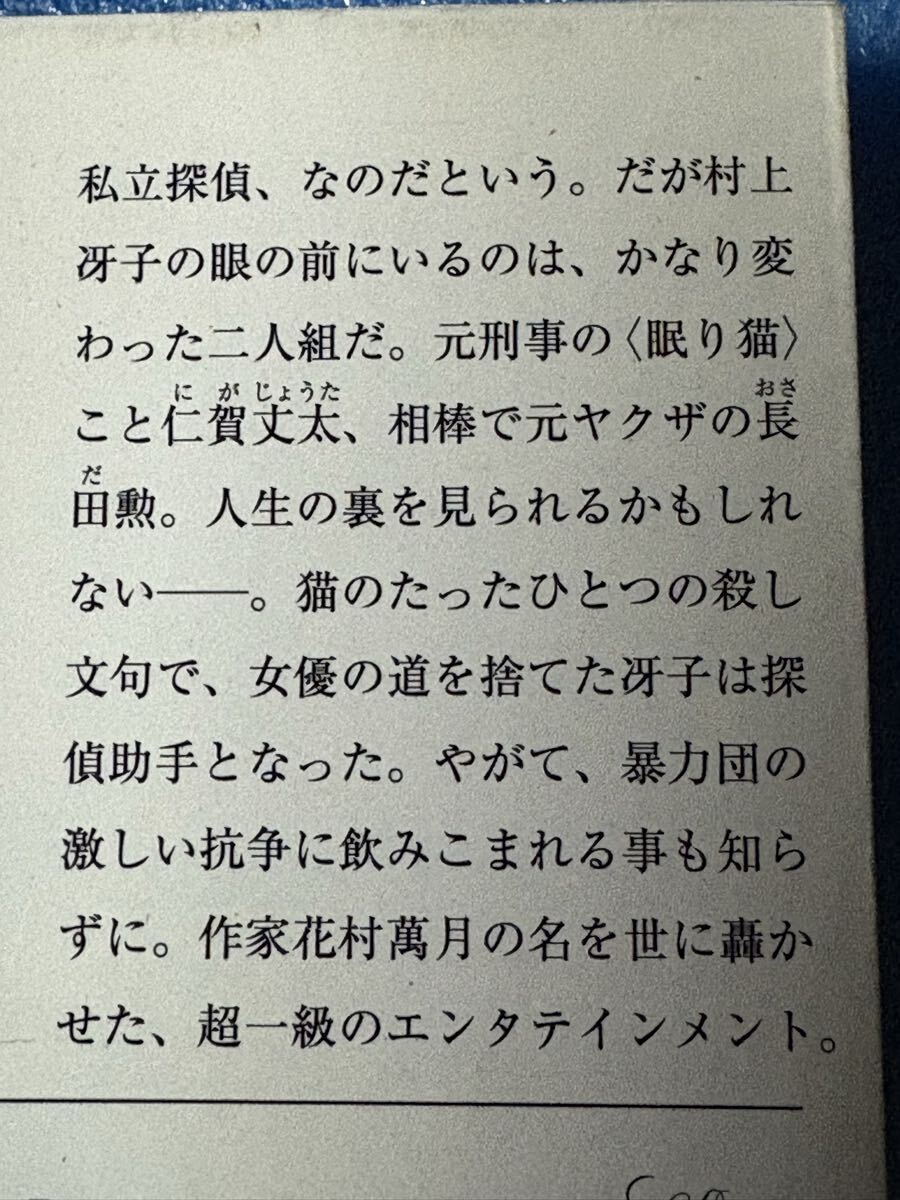 私立探偵、なのだという。だが村上
冴子の眼の前にいるのは、かなり変
わった二人組だ。元刑事の〈眠り猫〉
にがじょうた おさ
こと仁賀丈太、相棒で元ヤクザの長
だ
田勲。人生の裏を見られるかもしれ
ない――。猫のたったひとつの殺し
文句で、女優の道を捨てた冴子は探
偵助手となった。やがて、暴力団の
激しい抗争に飲みこまれる事も知ら
ずに。作家花村萬月の名を世に轟か
せた、超一級のエンタテインメント。